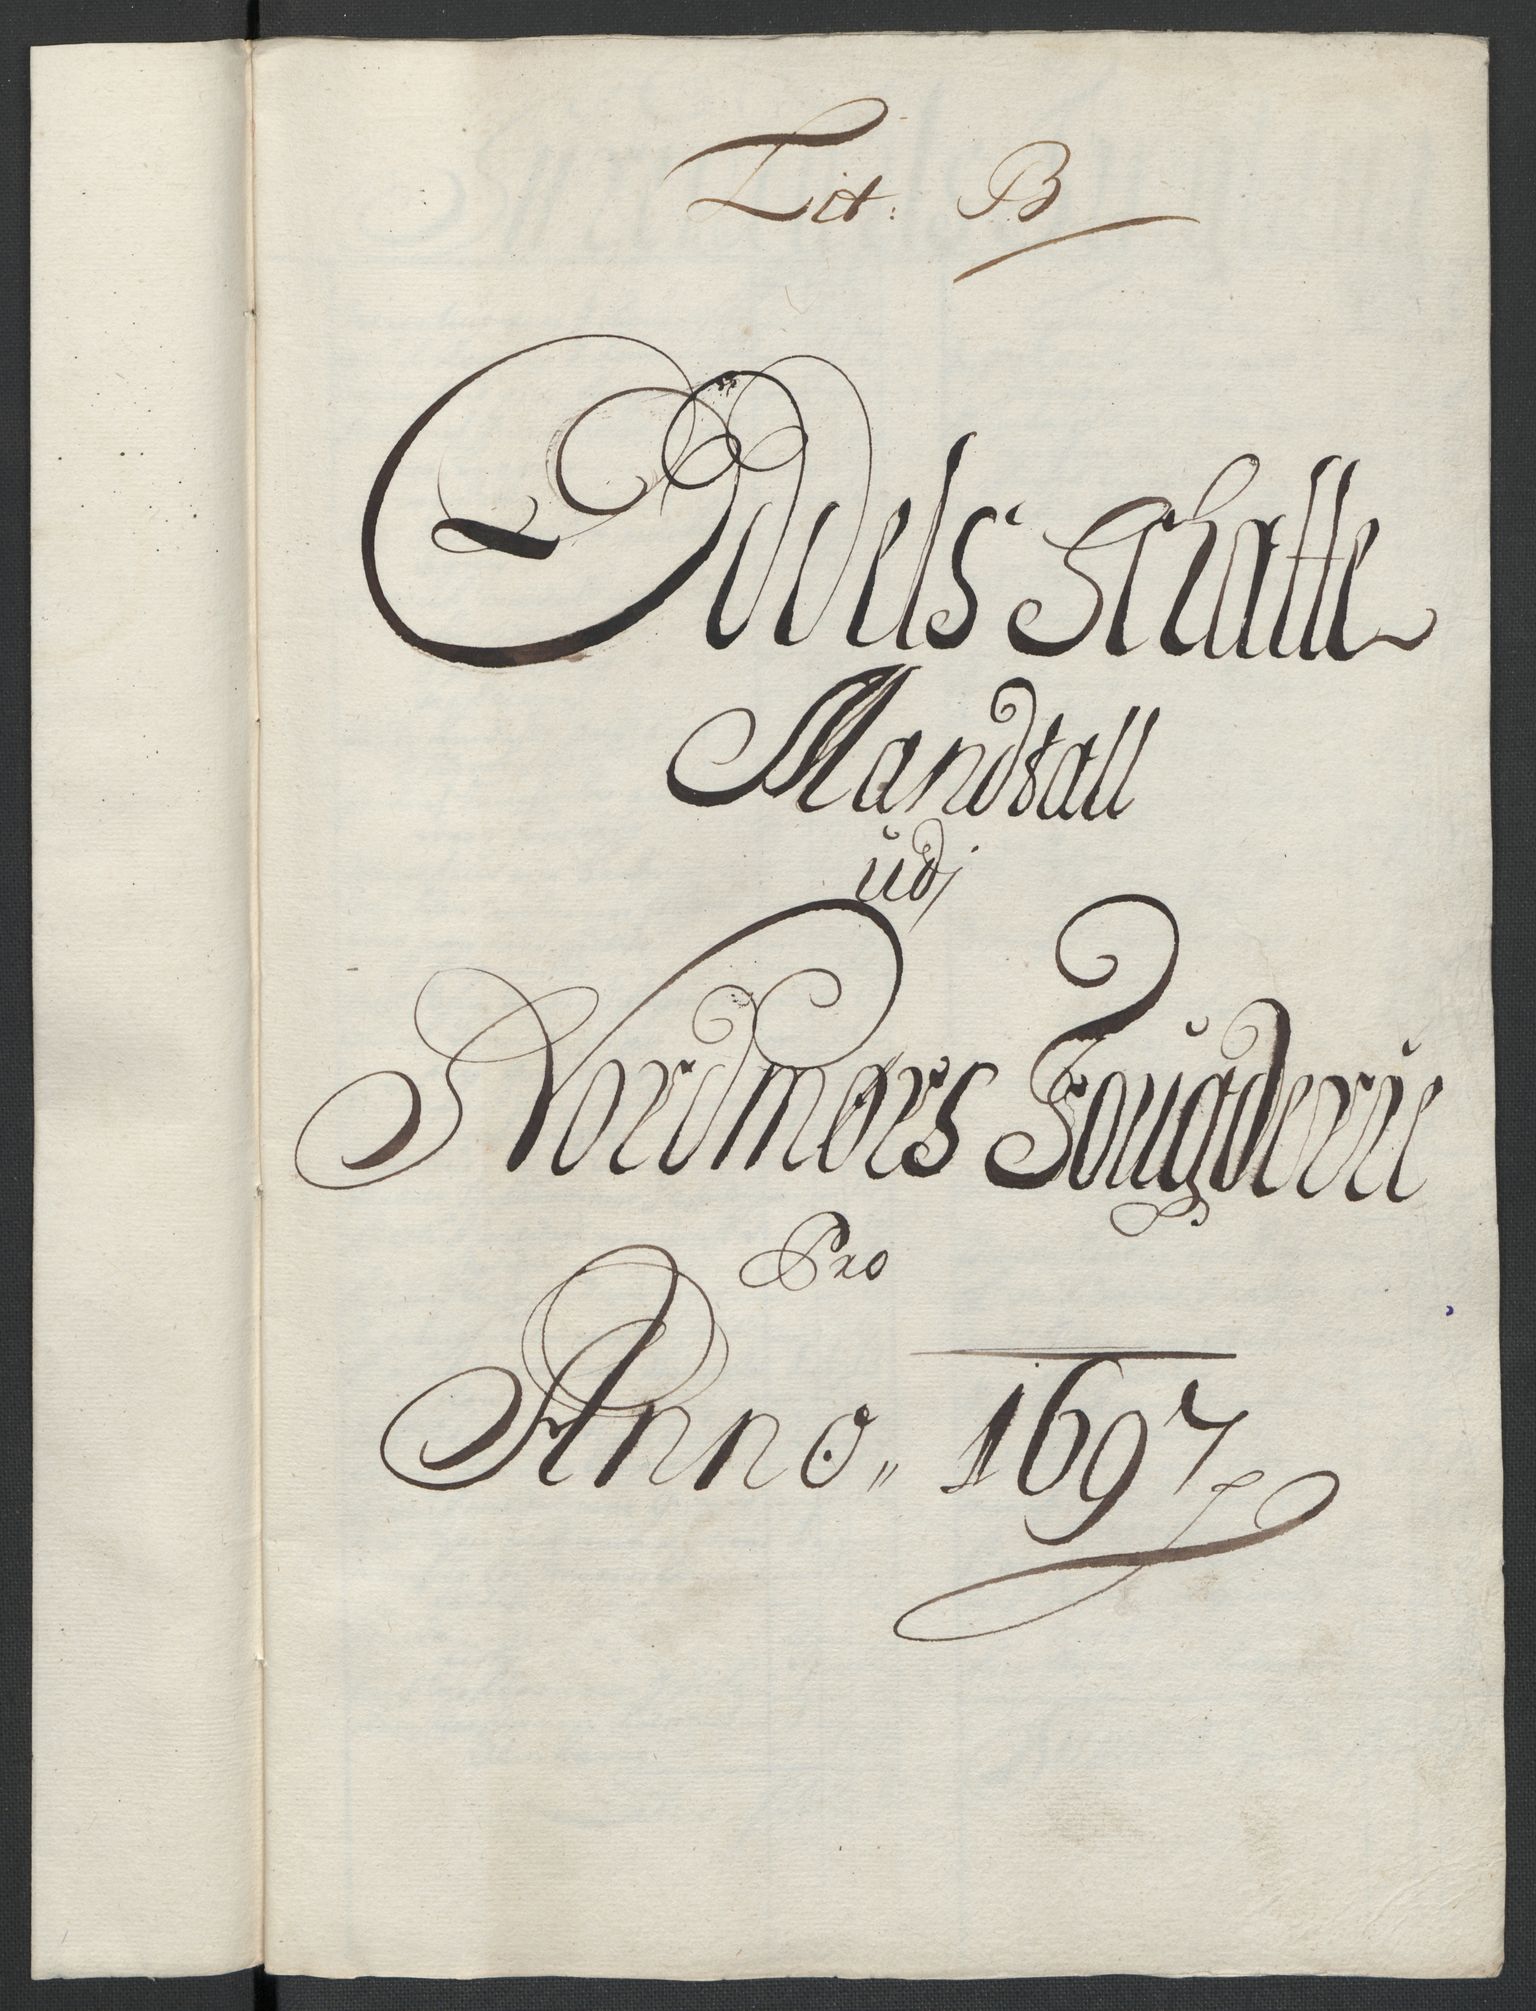 Lit: B
Oddels Schatte
Mandtall
udj
Nordmørs Fougderie
Pro
Anno,, 1697